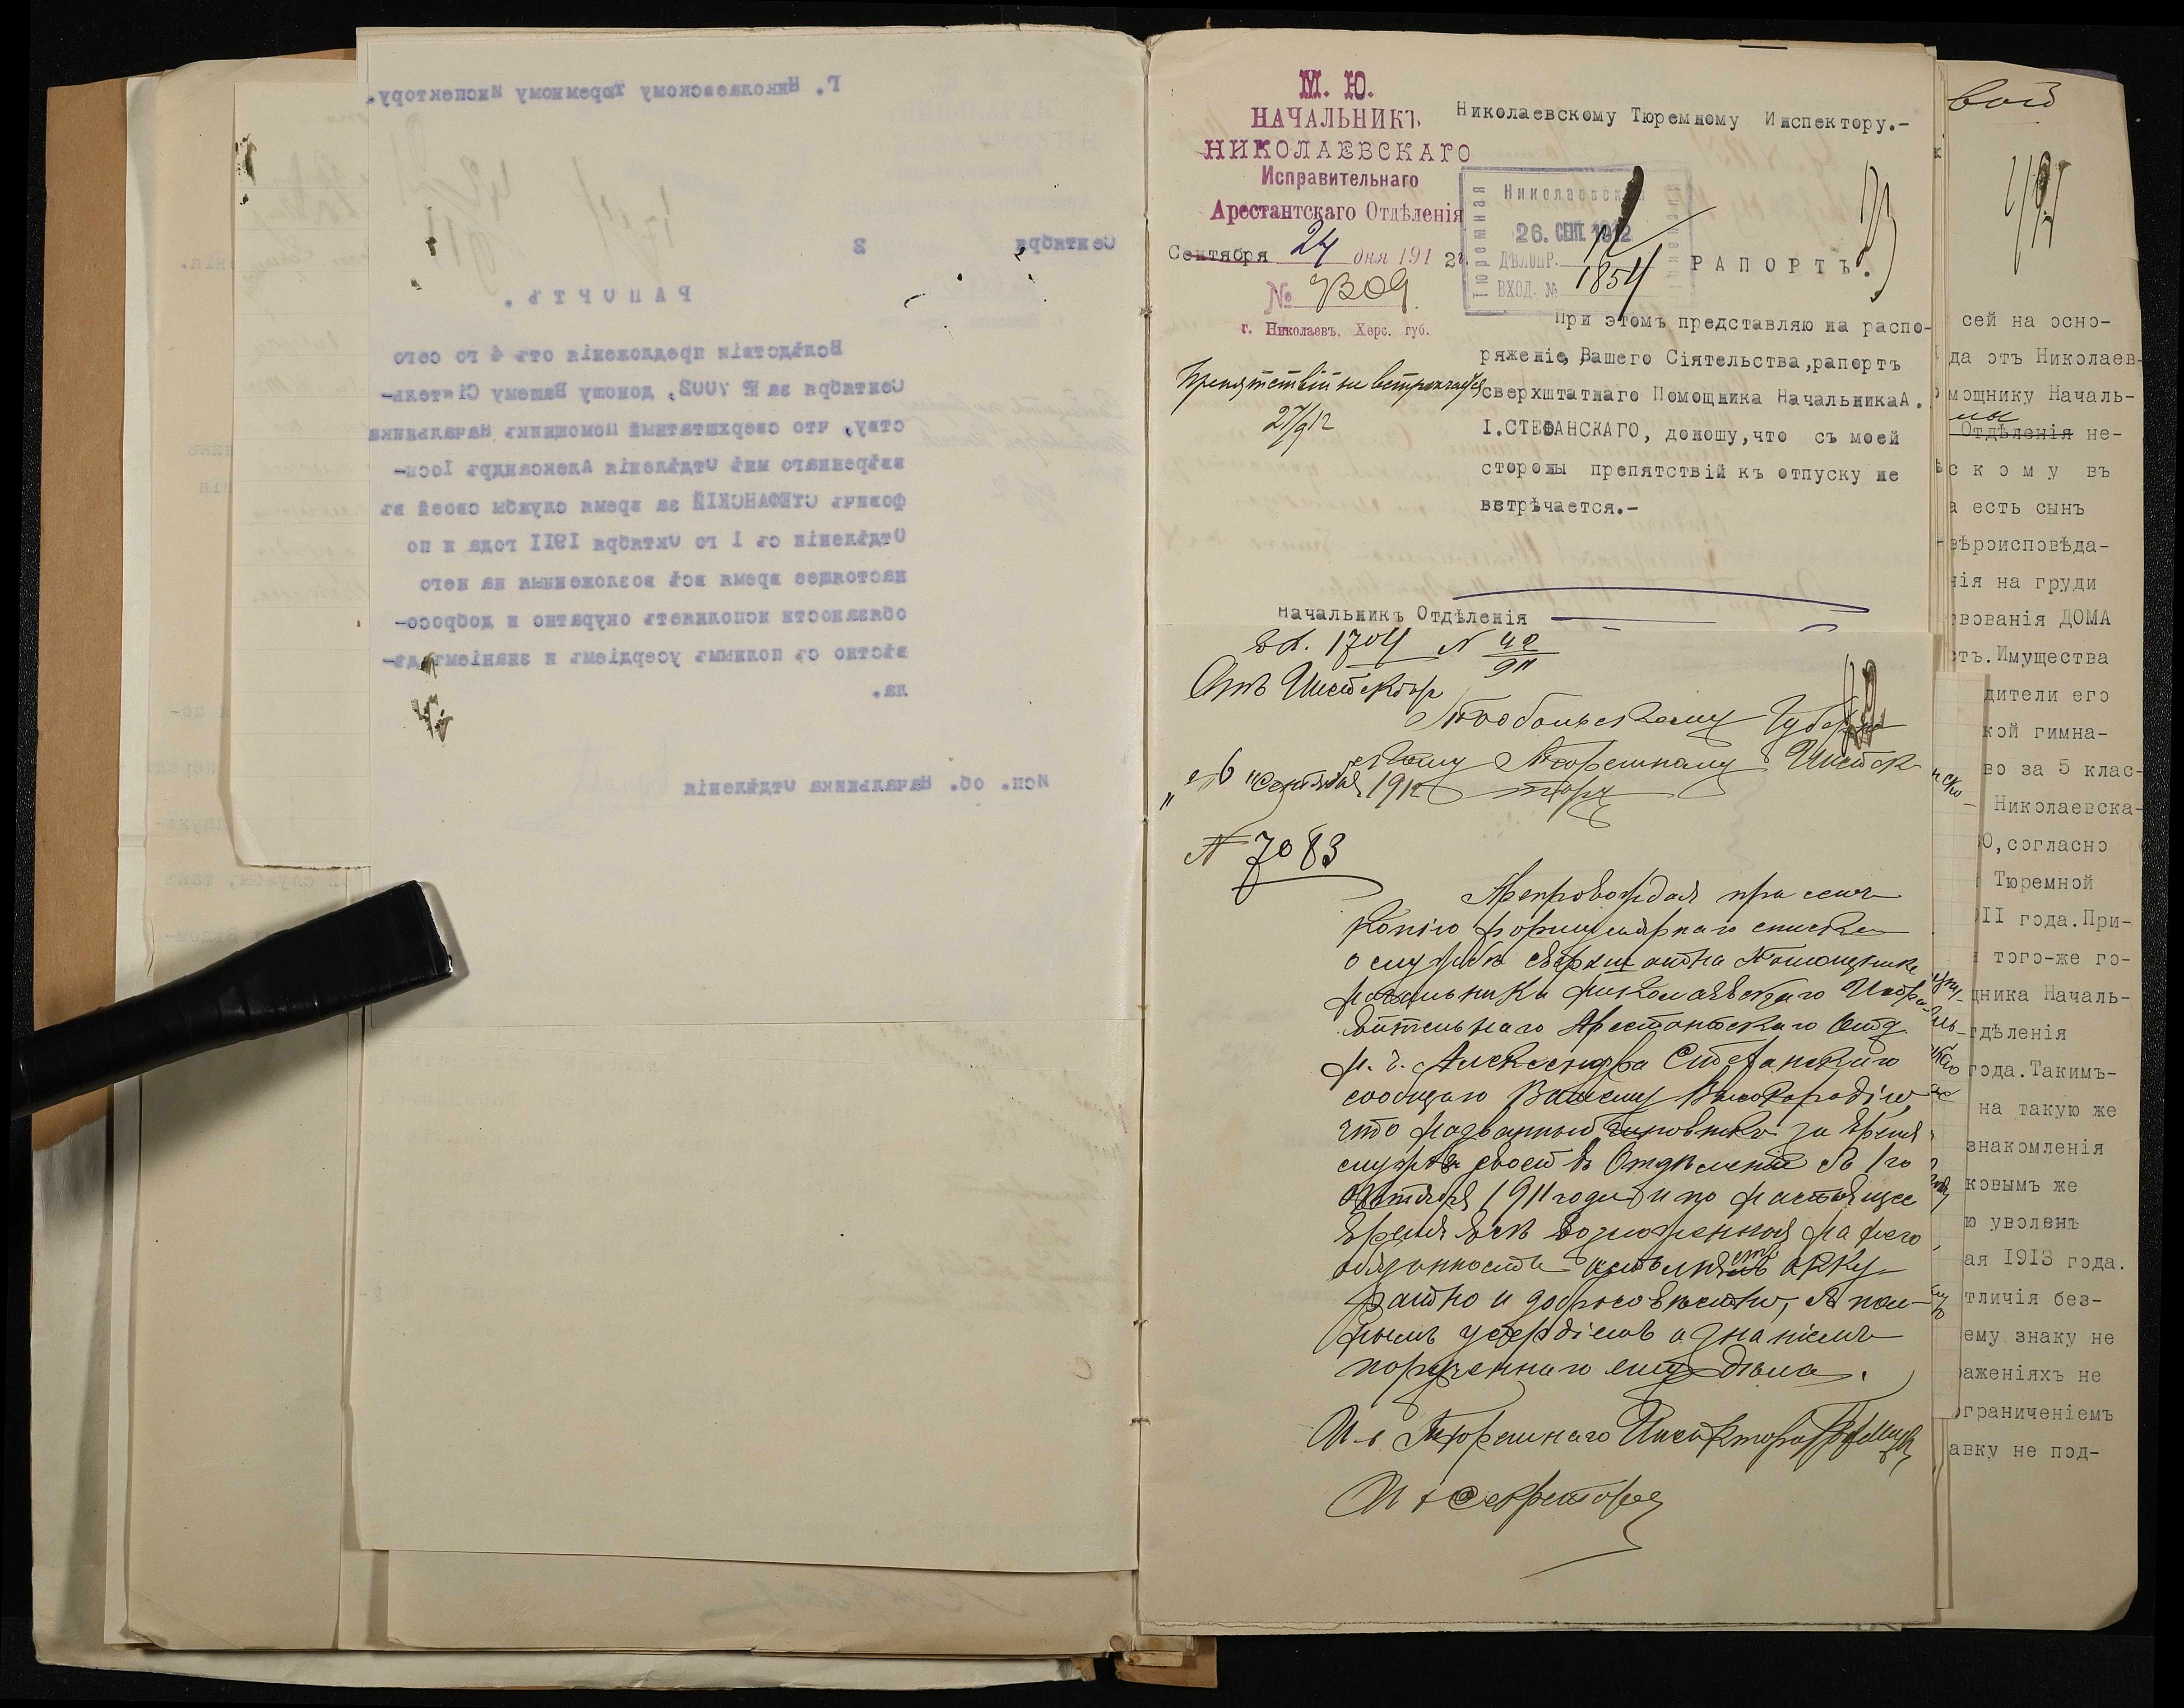 Г. Николаевскому Тюремному Инспектору.
Сентября 2
РАПОРТЪ.
Вслѣдствіи предложенія отъ 4 го сего
Сентября за № 7002, доношу Вашему Сіятель-
ству, что сверхштатный Помощникъ Начальника
ввѣреннаго мнѣ Отдѣленія Александръ Іоси-
фовичъ СТЕФАНСКІЙ за время службы своей въ
Отдѣленіи съ 1 го Октября 1911 года и по
настоящее время всѣ возложенныя на него
обязаности исполняетъ окуратно и добросо-
вѣстно съ полнымъ усердіемъ и знаніемъ дѣ-
ла.
Исп. об. Начальника Отдѣленія
М. Ю.
НАЧАЛЬНИКЪ
НИКОЛАЕВСКАГО
Исправительнаго
Арестантскаго Отдѣленія
Сентября 24 дня 1912 г.
№ 7309.
г. Николаевъ, Херс. губ.
Николаевскому Тюремному Инспектору.-
Николаевская
Тюремная
26. СЕНТ. 1912
ДѢЛОПР.
ВХОД. № 1854
РАПОРТЪ.
При этомъ представляю на распо-
ряженіе, Вашего Сіятельства,рапортъ
сверхштатнаго Помощника НачальникаА.
І.СТЕФАНСКАГО, доношу,что съ моей
стороны препятствій къ отпуску не
встрѣчается.-
Препятствій не встрѣчается
27/9 12
Начальникъ Отдѣленія
вх. 1704 N 42/911
Отъ Инспектор
Тобольскому Губерн
скому Тюремному Инспек
тору
"6" Сентября 1912
N 7083
Препровождая при семъ
копію формулярнаго списка
о службѣ сверхштатна Помощника
Начальника Николаевскаго Испра-
вительнаго Арестантскаго Отд.
н. ч. Александра Стефанскаго
сообщаю Вашему Высокородію,
что названный чиновникъ за время
службы своей въ Отдѣленіи съ 1го
Октября 1911 года и по настоящее
время всѣ возложенныя на него
обязанности исполняетъ акку-
ратно и добросовѣстно, съ пол-
нымъ усердіемъ и знаніемъ
порученнаго ему дѣла.
И. о. Тюремнаго Инспектора
И о Секретаря
сей на осно-
да отъ Николаев-
мощнику Началь-
Отдѣленія не-
скому въ
а есть сынъ
вѣроисповѣда-
нія на груди
твованія ДОМА
сть.Имущества
дители его
кой гимна-
во за 5 клас-
Николаевска-
О,согласно
Тюремной
911 года.При-
того-же го-
щника Началь-
тдѣленія
года.Такимъ-
на такую же
знакомленія
ковымъ же
ю уволенъ
ая 1913 года.
тличія без-
ему знаку не
раженіяхъ не
ограниченіемъ
авку не под-